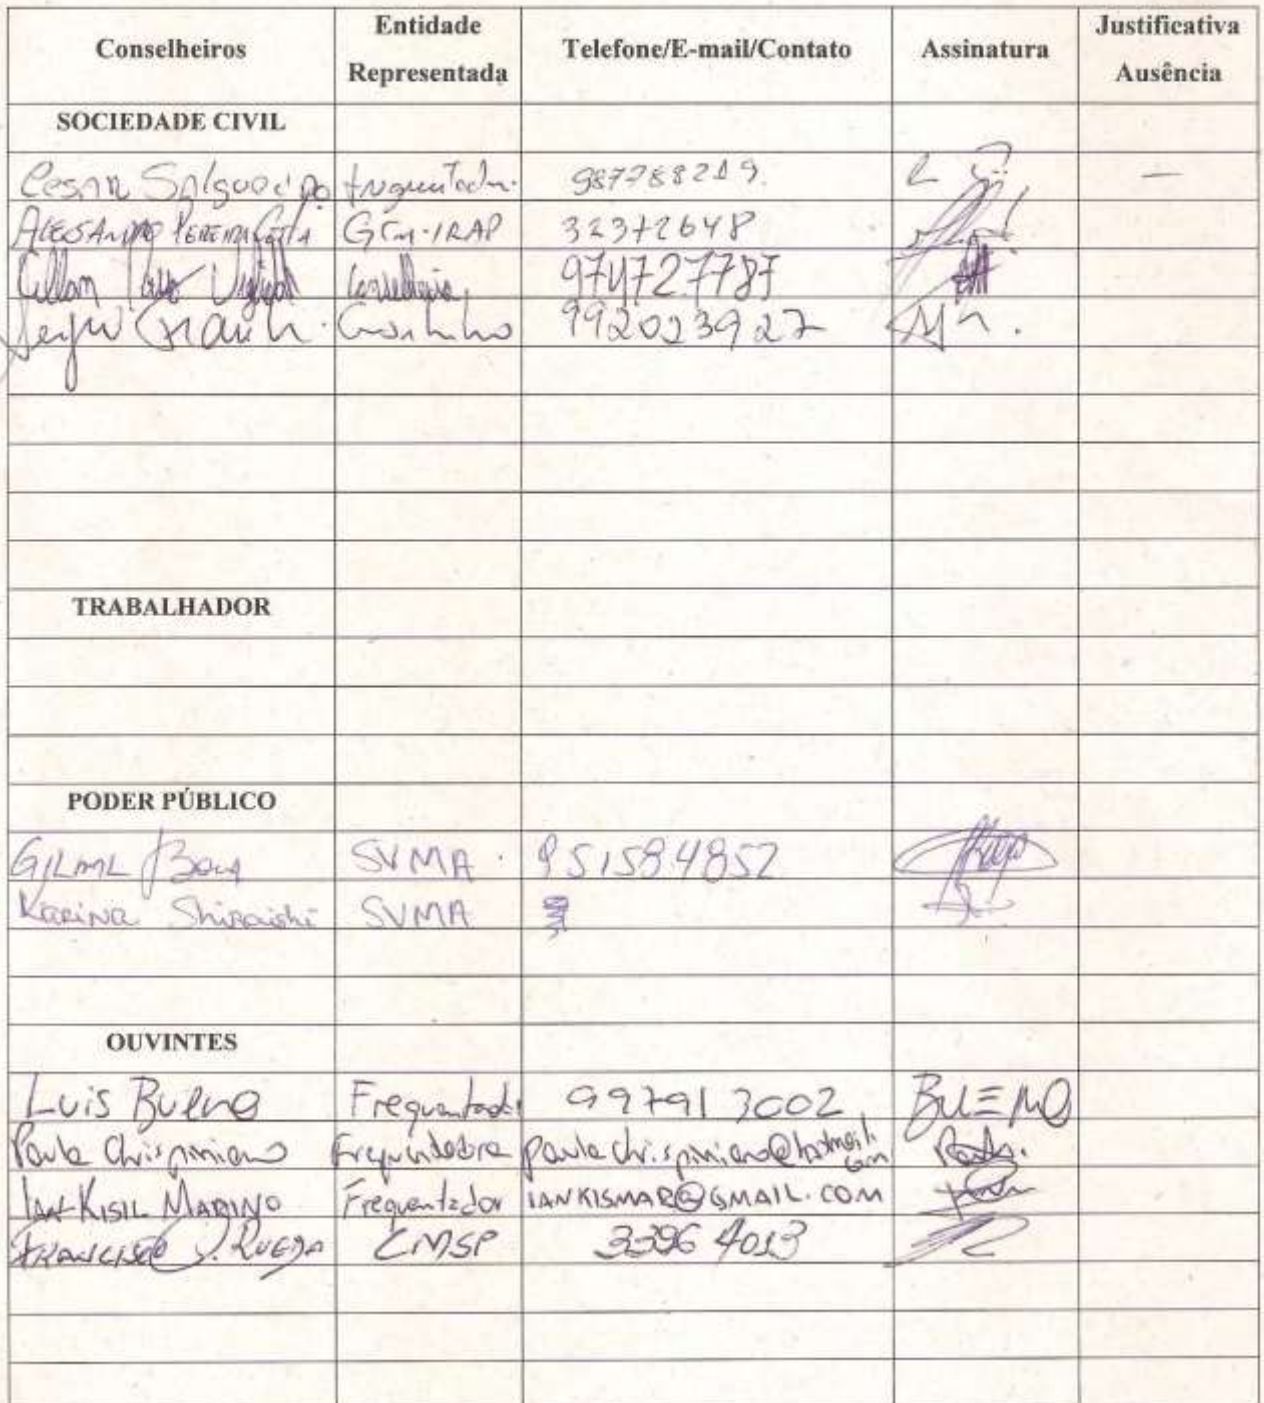 Conselheiros Entidade Representada Telefone/E-mail/Contato Assinatura Justificativa Ausência
SOCIEDADE CIVIL
Cesar Salgueiro 987288219. —
Alessandro Pereira Costa GTM-IRAP 32372648
974727787
Sergio 992023927
TRABALHADOR
PODER PÚBLICO
SVMA 951584852
Karina Shiraishi SVMA
OUVINTES
Luis Bueno Frequentador 997913002 BUENO
Paula Chrispiniano Frequentadora paulachrispiniano@hotmail.com
IAN KISIL MARINO Frequentador IANKISMAR@GMAIL.COM
FRANCISCO J. RUEDA CMSP 3396 4013